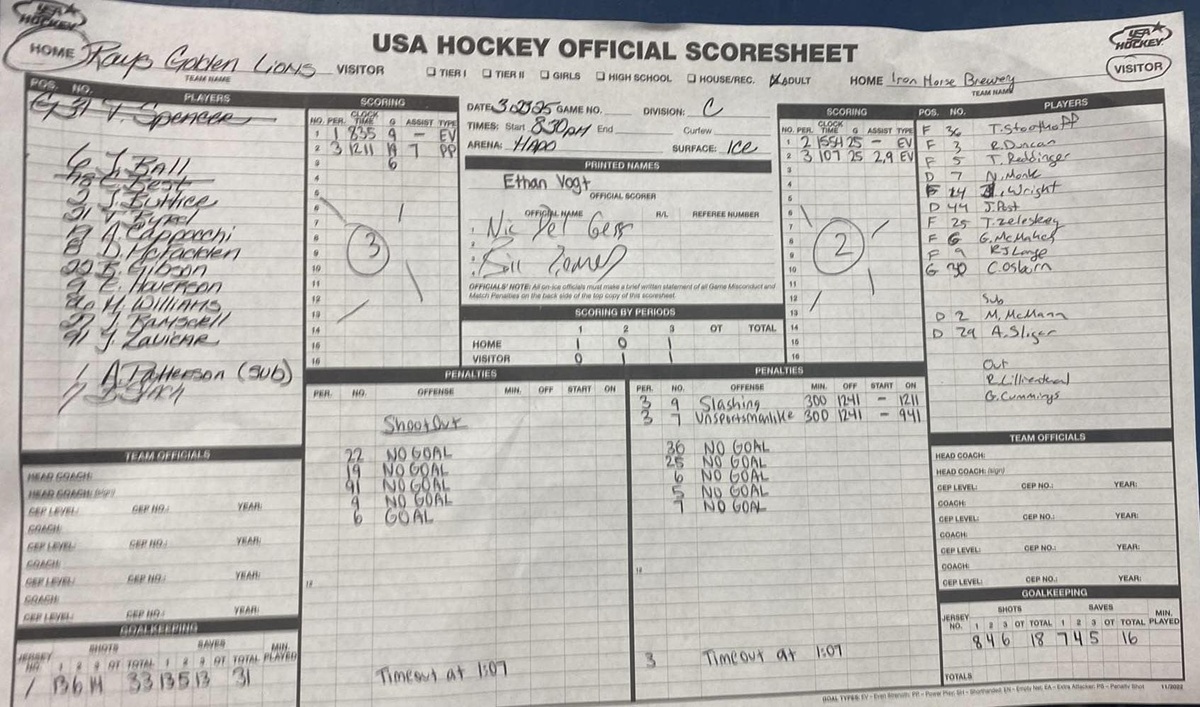 USA HOCKEY
HOME Rays Golden Lions
TEAM NAME
VISITOR
USA HOCKEY OFFICIAL SCORESHEET
TIER I TIER II GIRLS HIGH SCHOOL HOUSE/REC. ADULT
HOME Iron Horse Brewery
TEAM NAME
USA HOCKEY
VISITOR
POS. NO. PLAYERS
G 31 T. Spencer
6 J. Ball
Best
J. Buttice
A. Cappocchi
D. McFadden
22 E. Gibson
9 E. Haverson
M. Williams
J. Ramsell
91 J. Zaviche
1 A Patterson (Sub)
SCORING
NO. PER. CLOCK TIME G ASSIST TYPE
1 1 835 9 - EV
2 3 1211 19 7 PP
3 6
4
5
6
7
8
9
10
11
12
13
14
15
16
3
DATE 3.23.25 GAME NO. DIVISION: C
TIMES: Start 8:30pm End Curfew
ARENA: HAPO SURFACE: ICE
PRINTED NAMES
Ethan Vogt
OFFICIAL SCORER
OFFICIAL NAME R/L REFEREE NUMBER
1. Nic Del
2.
3.
OFFICIALS' NOTE: All on-ice officials must make a brief written statement of all Game Misconduct and
Match Penalties on the back side of the top copy of this scoresheet.
SCORING BY PERIODS
1 2 3 OT TOTAL
HOME 1 0 1
VISITOR 0 1 1
SCORING
NO. PER. CLOCK TIME G ASSIST TYPE
1 2 1554 25 - EV
2 3 107 25 2,9 EV
3
4
5
6
7
8
9
10
11
12
13
14
15
16
2
POS. NO. PLAYERS
F 36 T. Stoothoff
F 3 R. Duncan
F 5 T. Reddinger
D 7 N. Monk
F 24 Wright
D 44 J. Post
F 25 T. Zeleskey
F 6 G. McMahel
F 9 RJ Lange
G 30 C. Osburn
Sub
D 2 M. McMann
D 29 A. Sligar
Out
R. Lillienthal
G. Cummings
PENALTIES
PER. NO. OFFENSE MIN. OFF START ON
ShootOut
22 NO GOAL
19 NO GOAL
91 NO GOAL
9 NO GOAL
6 GOAL
Timeout at 1:07
PENALTIES
PER. NO. OFFENSE MIN. OFF START ON
3 9 Slashing 300 1241 - 1211
3 7 Unsportsmanlike 300 1241 - 941
36 NO GOAL
25 NO GOAL
6 NO GOAL
5 NO GOAL
7 NO GOAL
3 Timeout at 1:07
TEAM OFFICIALS
HEAD COACH:
HEAD COACH: (sign)
CEP LEVEL: CEP NO.: YEAR:
COACH:
CEP LEVEL: CEP NO.: YEAR:
COACH:
CEP LEVEL: CEP NO.: YEAR:
COACH:
CEP LEVEL: CEP NO.: YEAR:
GOALKEEPING
JERSEY NO. SHOTS SAVES MIN. PLAYED
1 2 3 OT TOTAL 1 2 3 OT TOTAL
1 13 6 14 33 13 5 13 31
TEAM OFFICIALS
HEAD COACH:
HEAD COACH: (sign)
CEP LEVEL: CEP NO.: YEAR:
COACH:
CEP LEVEL: CEP NO.: YEAR:
COACH:
CEP LEVEL: CEP NO.: YEAR:
COACH:
CEP LEVEL: CEP NO.: YEAR:
GOALKEEPING
JERSEY NO. SHOTS SAVES MIN. PLAYED
1 2 3 OT TOTAL 1 2 3 OT TOTAL
8 4 6 18 7 4 5 16
TOTALS
GOAL TYPES: EV - Even Strength, PP - Power Play, SH - Shorthanded, EN - Empty Net, EA - Extra Attacker, PS - Penalty Shot 11/2022